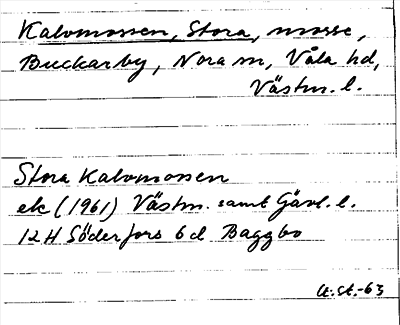 Kalvmossen, Stora, mosse,
Buckarby, Nora sn, Våla hd,
Västm. l.
Stora Kalvmossen
ek (1961) Västm. samt Gävl. l.
12H Söderfors 6d Baggbo
U.St.-63